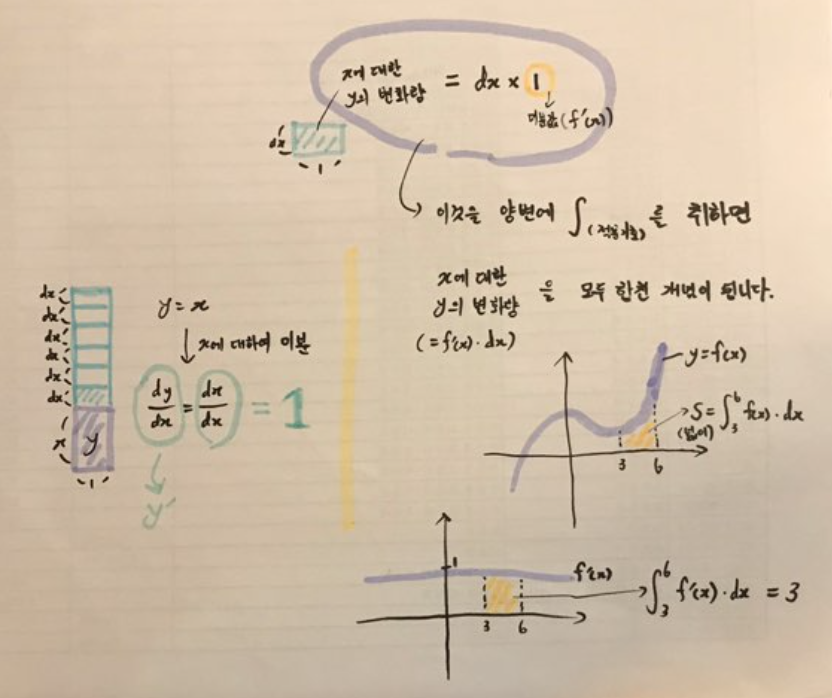 x에 대한
y의 변화량 = dx × 1
미분값(f'(x))
dx
1
이것을 양변에 ∫(적분기호)를 취하면
x에 대한
y의 변화량 을 모두 합친 개념이 됩니다.
(=f'(x)·dx)
dx
dx
dx
dx
dx
dx
x
y
1
y=x
x에 대하여 미분
dy/dx = dx/dx = 1
y'
y=f(x)
S=∫₃⁶ f(x)·dx
(넓이)
3 6
1
f'(x)
∫₃⁶ f'(x)·dx = 3
3 6